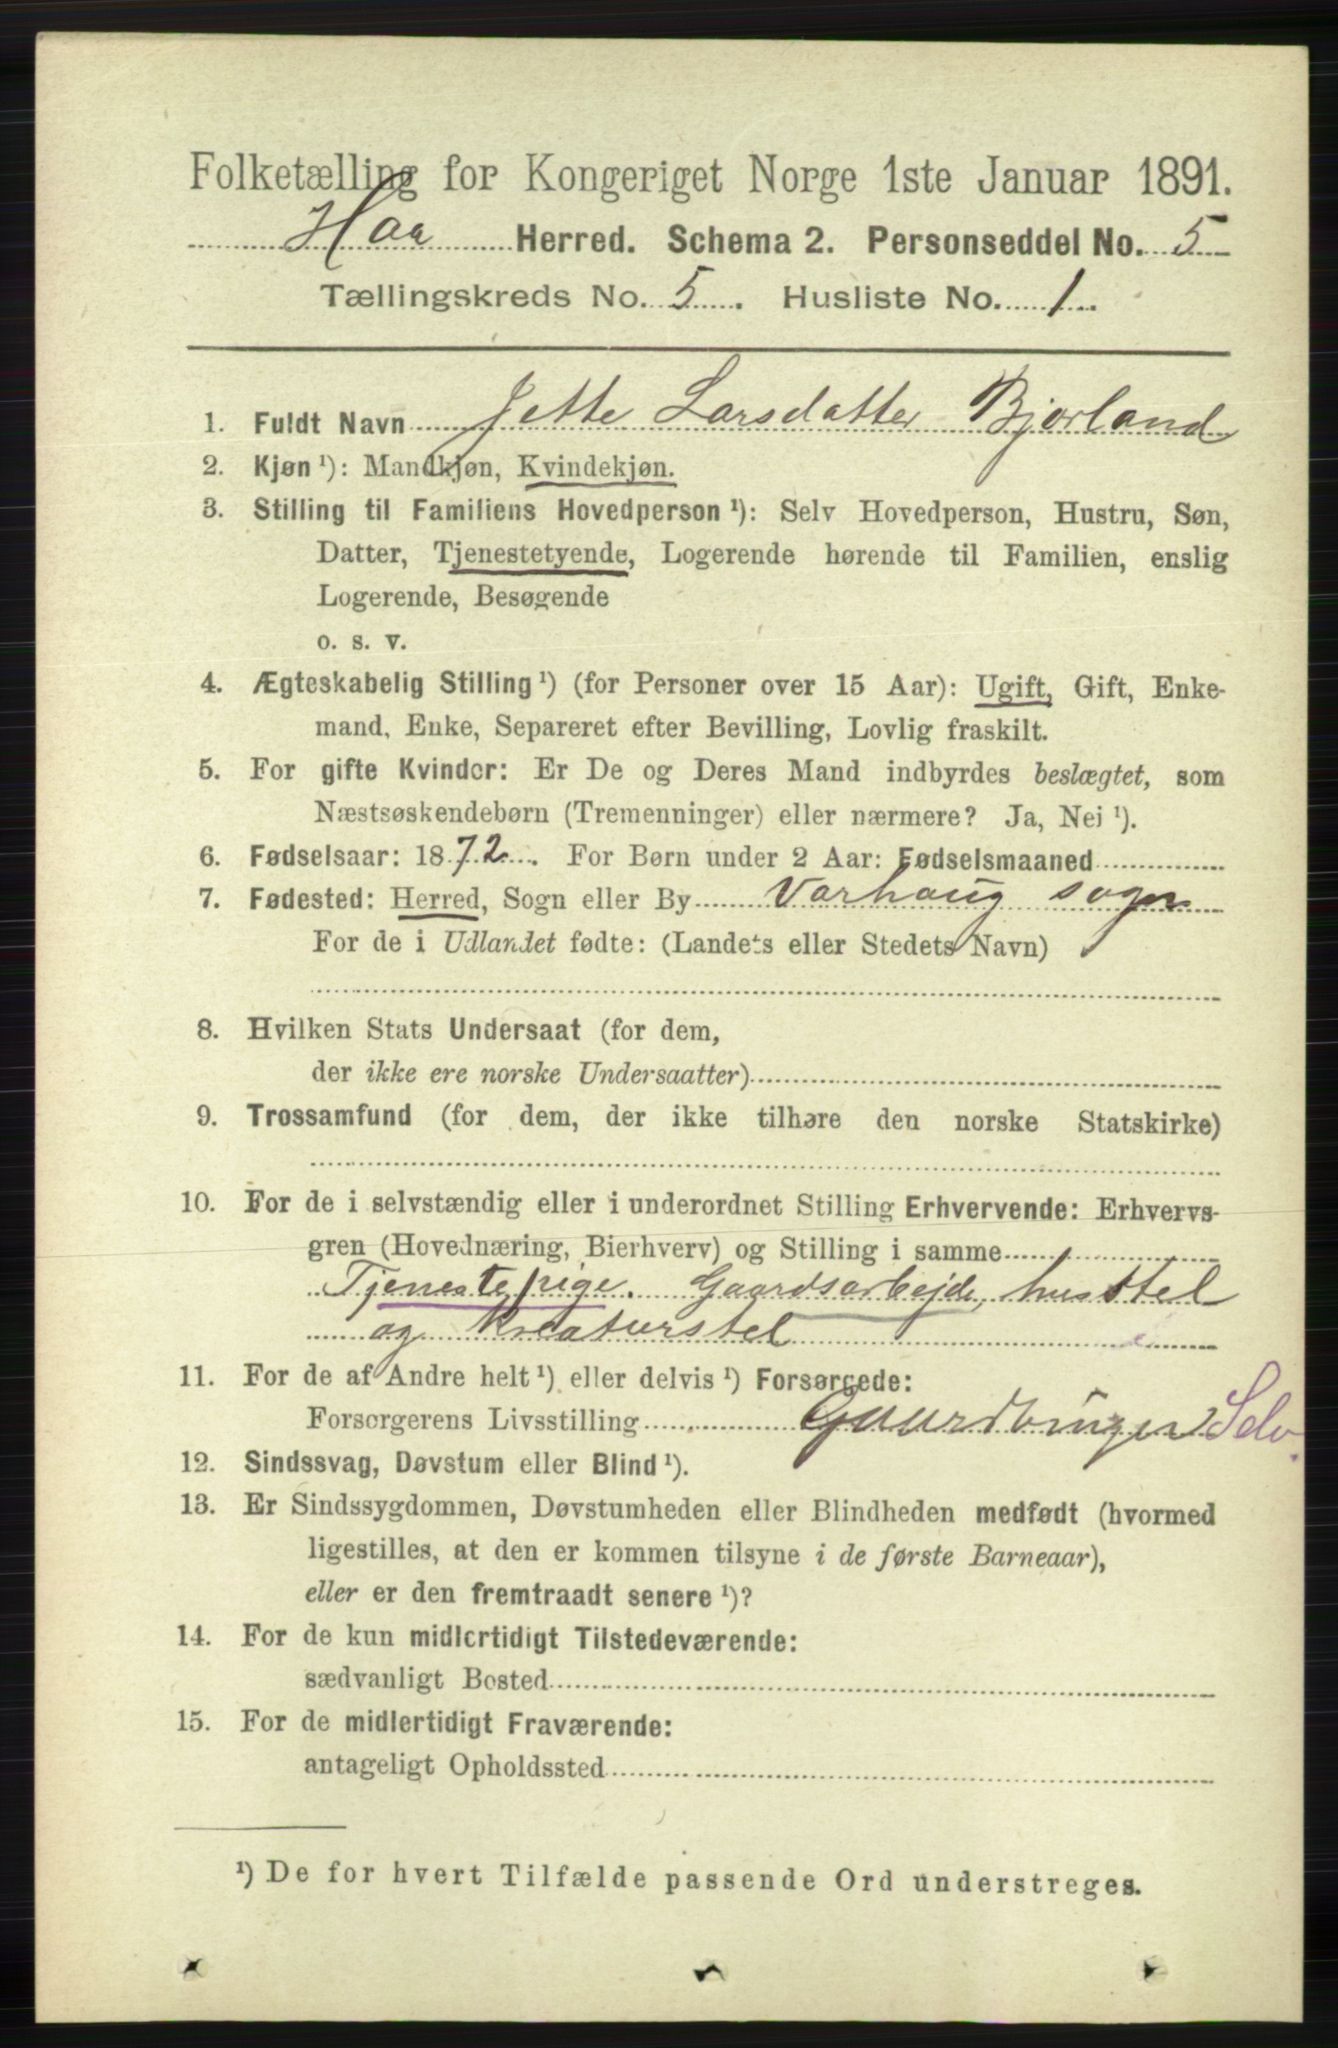 Folketælling for Kongeriget Norge 1ste Januar 1891.
Haa Herred. Schema 2. Personseddel No. 5
Tællingskreds No. 5. Husliste No. 1.
1. Fuldt Navn Jette Larsdatter Bjorland
2. Kjøn ¹): Mandkjøn, Kvindekjøn.
3. Stilling til Familiens Hovedperson ¹): Selv Hovedperson, Hustru, Søn,
Datter, Tjenestetyende, Logerende hørende til Familien, enslig
Logerende, Besøgende
o. s. v.
4. Ægteskabelig Stilling ¹) (for Personer over 15 Aar): Ugift, Gift, Enke-
mand, Enke, Separeret efter Bevilling, Lovlig fraskilt.
5. For gifte Kvinder: Er De og Deres Mand indbyrdes beslægtet, som
Næstsøskendebørn (Tremenninger) eller nærmere? Ja, Nei ¹).
6. Fødselsaar: 1872. For Børn under 2 Aar: Fødselsmaaned
7. Fødested: Herred, Sogn eller By Varhaug sogn
For de i Udlandet fødte: (Landets eller Stedets Navn)
8. Hvilken Stats Undersaat (for dem,
der ikke ere norske Undersaatter)
9. Trossamfund (for dem, der ikke tilhøre den norske Statskirke)
10. For de i selvstændig eller i underordnet Stilling Erhvervende: Erhvervs-
gren (Hovednæring, Bierhverv) og Stilling i samme
Tjenestepige. Gaardsarbejde, husstel
og kreaturstel
11. For de af Andre helt ¹) eller delvis ¹) Forsørgede:
Forsørgerens Livsstilling Gaardbruger Selv.
12. Sindssvag, Døvstum eller Blind ¹).
13. Er Sindssygdommen, Døvstumheden eller Blindheden medfødt (hvormed
ligestilles, at den er kommen tilsyne i de første Barneaar),
eller er den fremtraadt senere ¹)?
14. For de kun midlertidigt Tilstedeværende:
sædvanligt Bosted
15. For de midlertidigt Fraværende:
antageligt Opholdssted
¹) De for hvert Tilfælde passende Ord understreges.